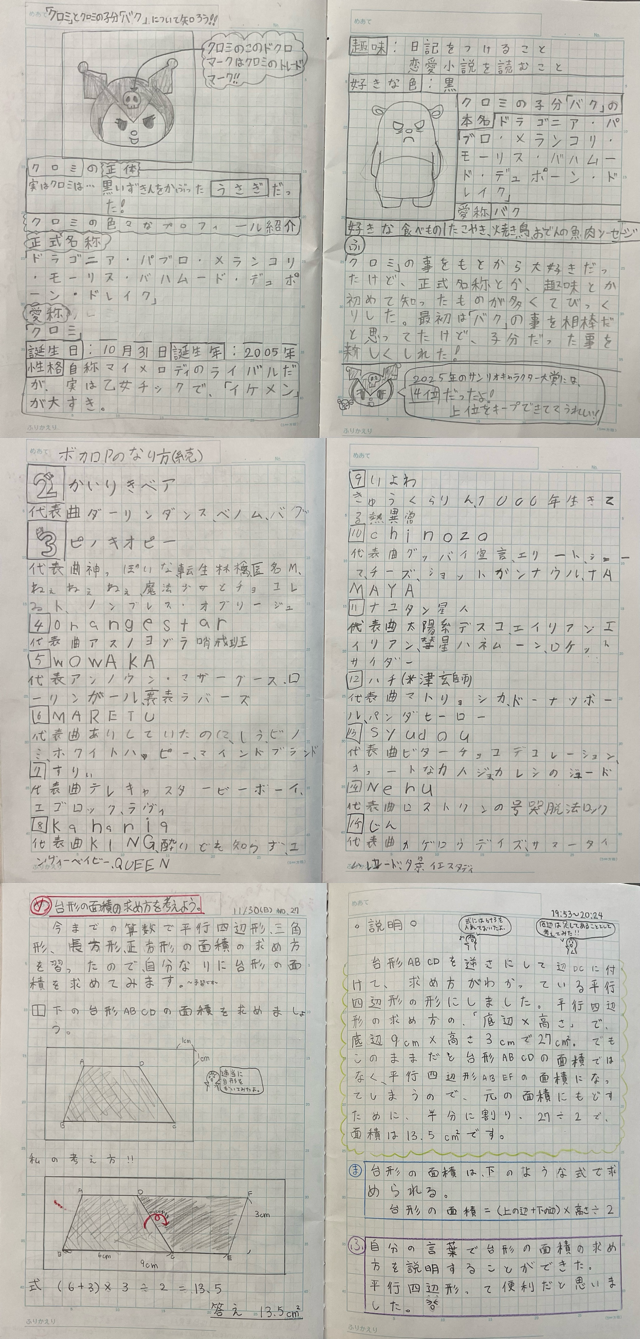 「クロミ」とクロミの子分「バク」について知ろう!!
クロミのこのドクロ
マークはクロミのトレード
マーク!!
クロミの正体
実はクロミは…黒いずきんをかぶった うさぎ だっ
た!
クロミの色々なプロフィール紹介
正式名称
「ドラゴニア・パブロ・メランコリ
・モーリス・バハムード・デュポ
ーン・ドレイク」
愛称
「クロミ」
誕生日:10月31日 誕生年:2005年
性格 自称マイメロディのライバルだ
が、実は乙女チックで、「イケメン」
が大すき。
ふりかえり
めあて
趣味:日記をつけること
恋愛小説を読むこと
好きな色:黒
クロミの子分「バク」の
本名 ドラゴニア・パ
ブロ・メランコリ・
モーリス・バハムー
ド・デュポーン・ド
レイク」
愛称 バク
好きな食べもの たこやき、焼き鳥、おでんの魚肉ソーセージ
ふ
「クロミ」の事をもとから大好きだっ
たけど、正式名称とか、趣味とか
初めて知ったものが多くてびっく
りした。最初は「バク」の事を相棒だ
と思ってたけど、子分だった事を
新しくしれた!
2025年のサンリオキャラクター大賞では、
4位だったよ!!
上位をキープできててうれしい!
ふりかえり
めあて
ボカロPのなり方(続)
2 かいりきベア
代表曲 ダーリンダンス、ベノム、バグ
3 ピノキオピー
代表曲 神っぽいな、転生林檎、匿名M、
ねぇねぇねぇ、魔法少女とチョコレ
ゐト、ノンブレス・オブリージュ
4 Orangestar
代表曲 アスノヨゾラ哨戒班
5 wowAKA
代表曲 アンノウン・マザーグース、ロ
ーリンガール、裏表ラバーズ
6 MARETU
代表曲 ありしていたのに、しう、ビノ
ミ、ホワイトハッピー、マインドブランド
7 すりぃ
代表曲 テレキャスタービーボーイ、
エゴロック、ラヴィ
8 Kanaria
代表曲 KING、酔いどれ知らず、エ
ンヴィーベイビー、QUEEN
めあて
9 いよわ
きゅうくらりん、1000年生きて
る、熱異常
10 chinozo
代表曲 グッバイ宣言、エリート、シェー
マ、チーズ、ショットガンナウル、TA
MAYA
11 ナユタン星人
代表曲 太陽系デスコ、エイリアンエ
イリアン、彗星ハネムーン、ロケット
サイダー
12 ハチ(米津玄師)
代表曲 マトリョシカ、ドーナツホー
ル、パンダヒーロー
13 syudou
代表曲 ビターチョコデコレーション、
キュートなカノジョ、カレシのジュード
14 Neru
代表曲 ロストワンの号哭、脱法ロック
15 じん
代表曲 カゲロウデイズ、サマータイ
ムレコード、夕景イエスタデイ
め 台形の面積の求め方を考えよう。
11/30(日) NO.27
今までの算数で平行四辺形、三角
形、長方形、正方形の面積の求め方
を習ったので、自分なりに台形の面
積を求めてみます。
1 下の台形ABCDの面積を求めましょ
う。
1cm
1cm
A D
B C
適当に
台形を
かいてみたよ。
私の考え方!!
A D F
3cm
B 6cm C E
9cm
式 (6+3)×3÷2=13.5
答え 13.5cm²
ふりかえり
19:53〜20:24
。説明。
式にはかっこを
入れてないかな。
底辺は足してあることにして
考えてみた!!
台形ABCDを逆さにして辺DCに付
けて、求め方がわかっている平行
四辺形の形にしました。平行四辺
形の求め方の、「底辺×高さ」で、
底辺9cm×高さ3cmで27cm²。でも
このままだと台形ABCDの面積では
なく、平行四辺形ABEFの面積になっ
てしまうので、元の面積にもどす
ために、半分に割り、27÷2で、
面積は13.5cm²です。
ま 台形の面積は、下のような式で求
められる。
台形の面積=(上の辺+下の辺)×高さ÷2
ふ 自分の言葉で台形の面積の求め
方を説明することができた。
平行四辺形って便利だと思いま
した。
ふりかえり